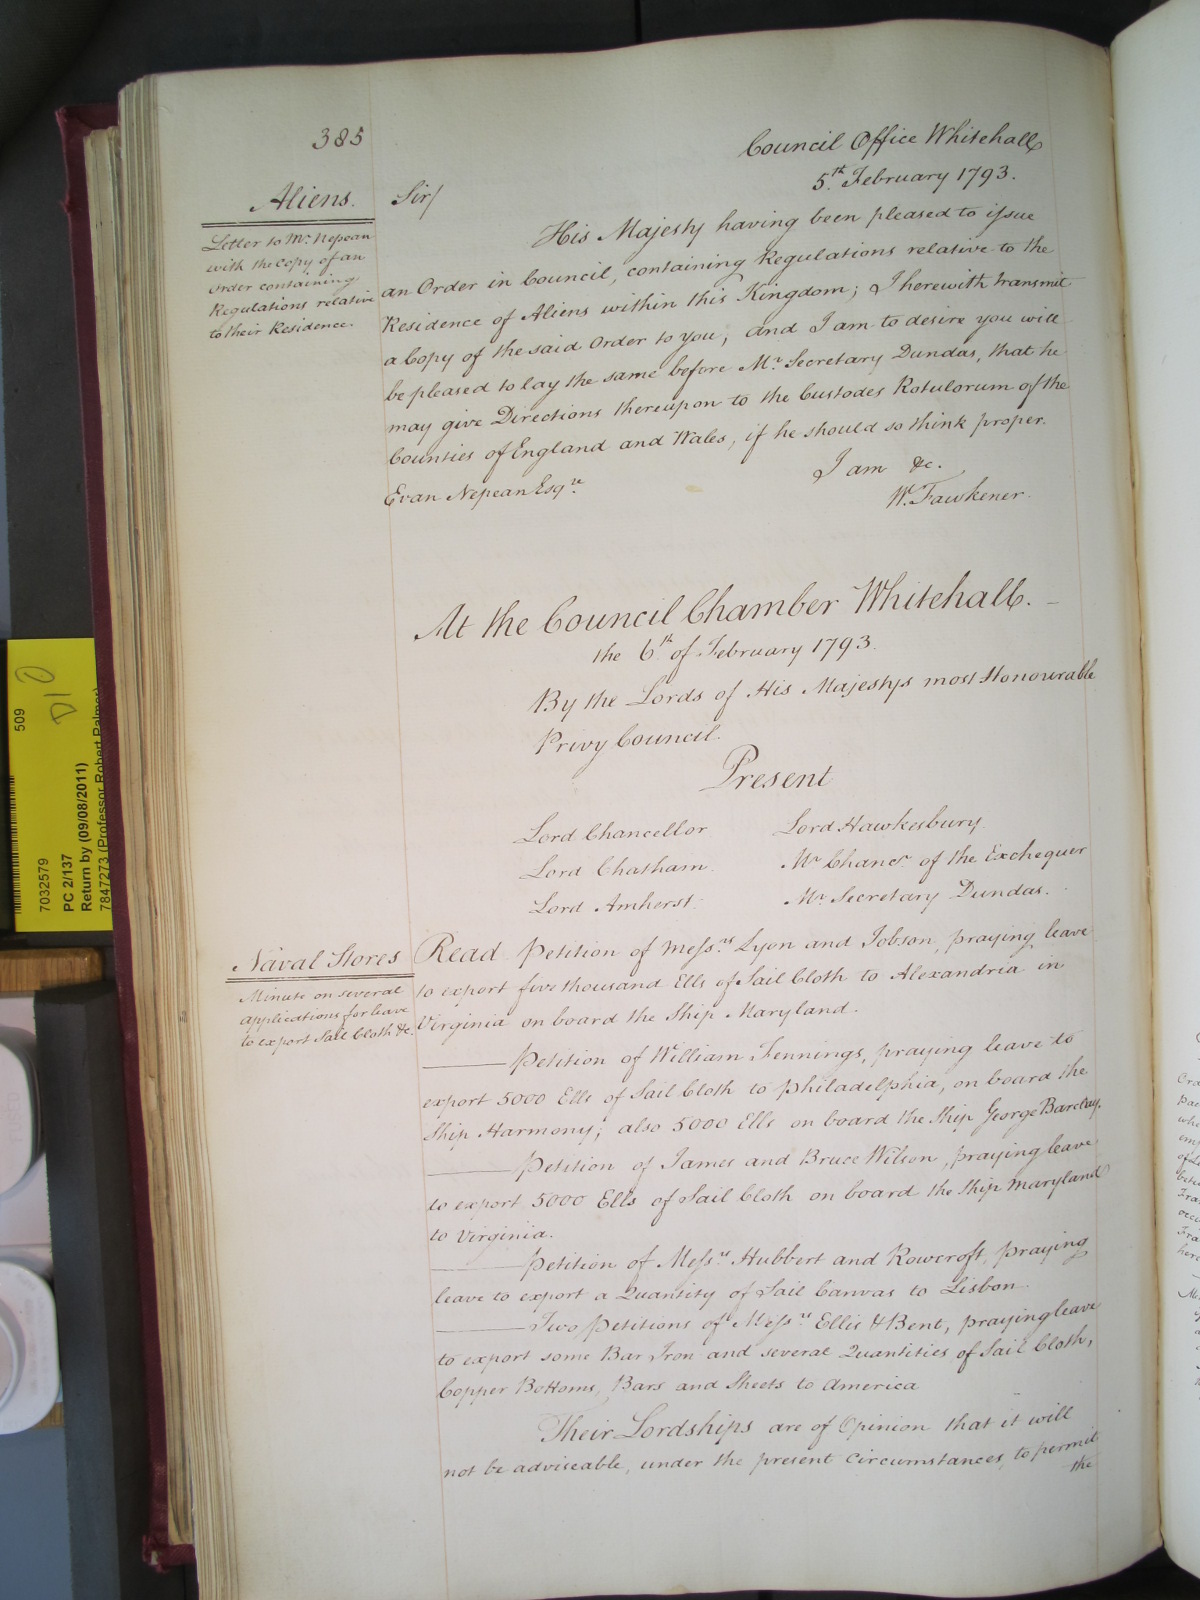 385
Council Office Whitehall
5th February 1793.
Aliens.
Letter to Mr Nepean
with the Copy of an
Order containing
Regulations relative
to their Residence.
Sir/
His Majesty having been pleased to issue
an Order in Council, containing Regulations relative to the
Residence of Aliens within this Kingdom; I herewith transmit
a Copy of the said Order to you; and I am to desire you will
be pleased to lay the same before Mr Secretary Dundas, that he
may give Directions thereupon to the Custodes Rotulorum of the
Counties of England and Wales, if he should so think proper.
I am &c.
Evan Nepean Esqre
W. Fawkener.
At the Council Chamber Whitehall.
the 6th of February 1793.
By the Lords of His Majestys most Honourable
Privy Council.
Present
Lord Chancellor
Lord Chatham.
Lord Amherst.
Lord Hawkesbury.
Mr Chancr of the Exchequer
Mr Secretary Dundas.
Naval Stores
Minute on several
applications for leave
to export Sail Cloth &c.
Read Petition of Messrs Lyon and Jobson, praying leave
to export five thousand Ells of Sail Cloth to Alexandria in
Virginia on board the Ship Maryland.
Petition of William Jennings, praying leave to
export 5000 Ells of Sail Cloth to Philadelphia, on board the
Ship Harmony; also 5000 Ells on board the Ship George Barclay.
Petition of James and Bruce Wilson, praying leave
to export 5000 Ells of Sail Cloth on board the Ship Maryland
to Virginia.
Petition of Messrs Hubbert and Rowcroft, praying
leave to export a Quantity of Sail Canvas to Lisbon.
Two Petitions of Messrs Ellis & Bent, praying leave
to export some Bar Iron and several Quantities of Sail Cloth,
Copper Bottoms, Bars and Sheets to America
Their Lordships are of Opinion that it will
not be adviseable, under the present Circumstances, to permit
the
509
D10
7032579
PC 2/137
Return by (09/08/2011)
7847273 (Professor Robert Palmer)